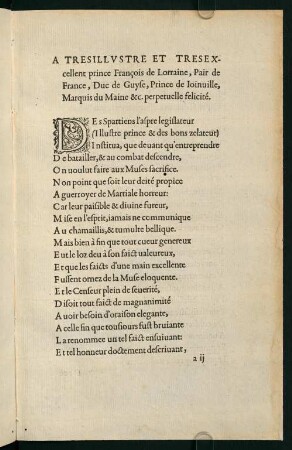 A TRESILLVSTRE ET TRESEX-
cellent prince François de Lorraine, Pair de
France, Duc de Guyse, Prince de Ioinuille,
Marquis du Maine &c. perpetuelle felicité.
DEs Spartiens l'aspre legislateur
(Illustre prince & des bons zelateur)
Institua, que deuant qu'entreprendre
De batailler, & au combat descendre,
On voulut faire aux Muses sacrifice.
Non point que soit leur deité propice
A guerroyer de Martiale horreur:
Car leur paisible & diuine fureur,
Mise en l'esprit, iamais ne communique
Au chamaillis, & tumulte bellique.
Mais bien à fin que tout cueur genereux
Eut le loz deu à son faict valeureux,
Et que les faicts d'une main excellente
Fussent ornez de la Muse eloquente.
Et le Censeur plein de seuerité,
Disoit tout faict de magnanimité
Auoir besoin d'oraison elegante,
A celle fin que tousiours fust bruiante
La renommee un tel faict ensuiuant:
Et tel honneur doctement descriuant,
a ij